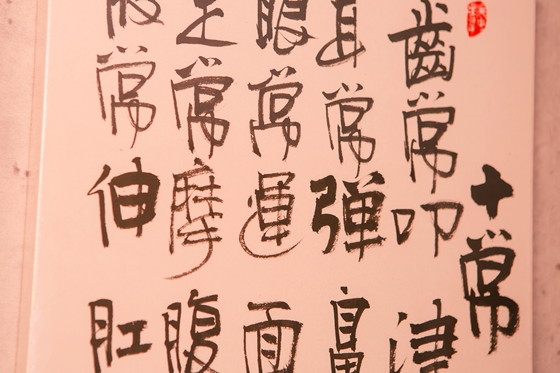 十常
齒常叩津
耳常弹鼻
眼常運面
常摩腹
常伸肛